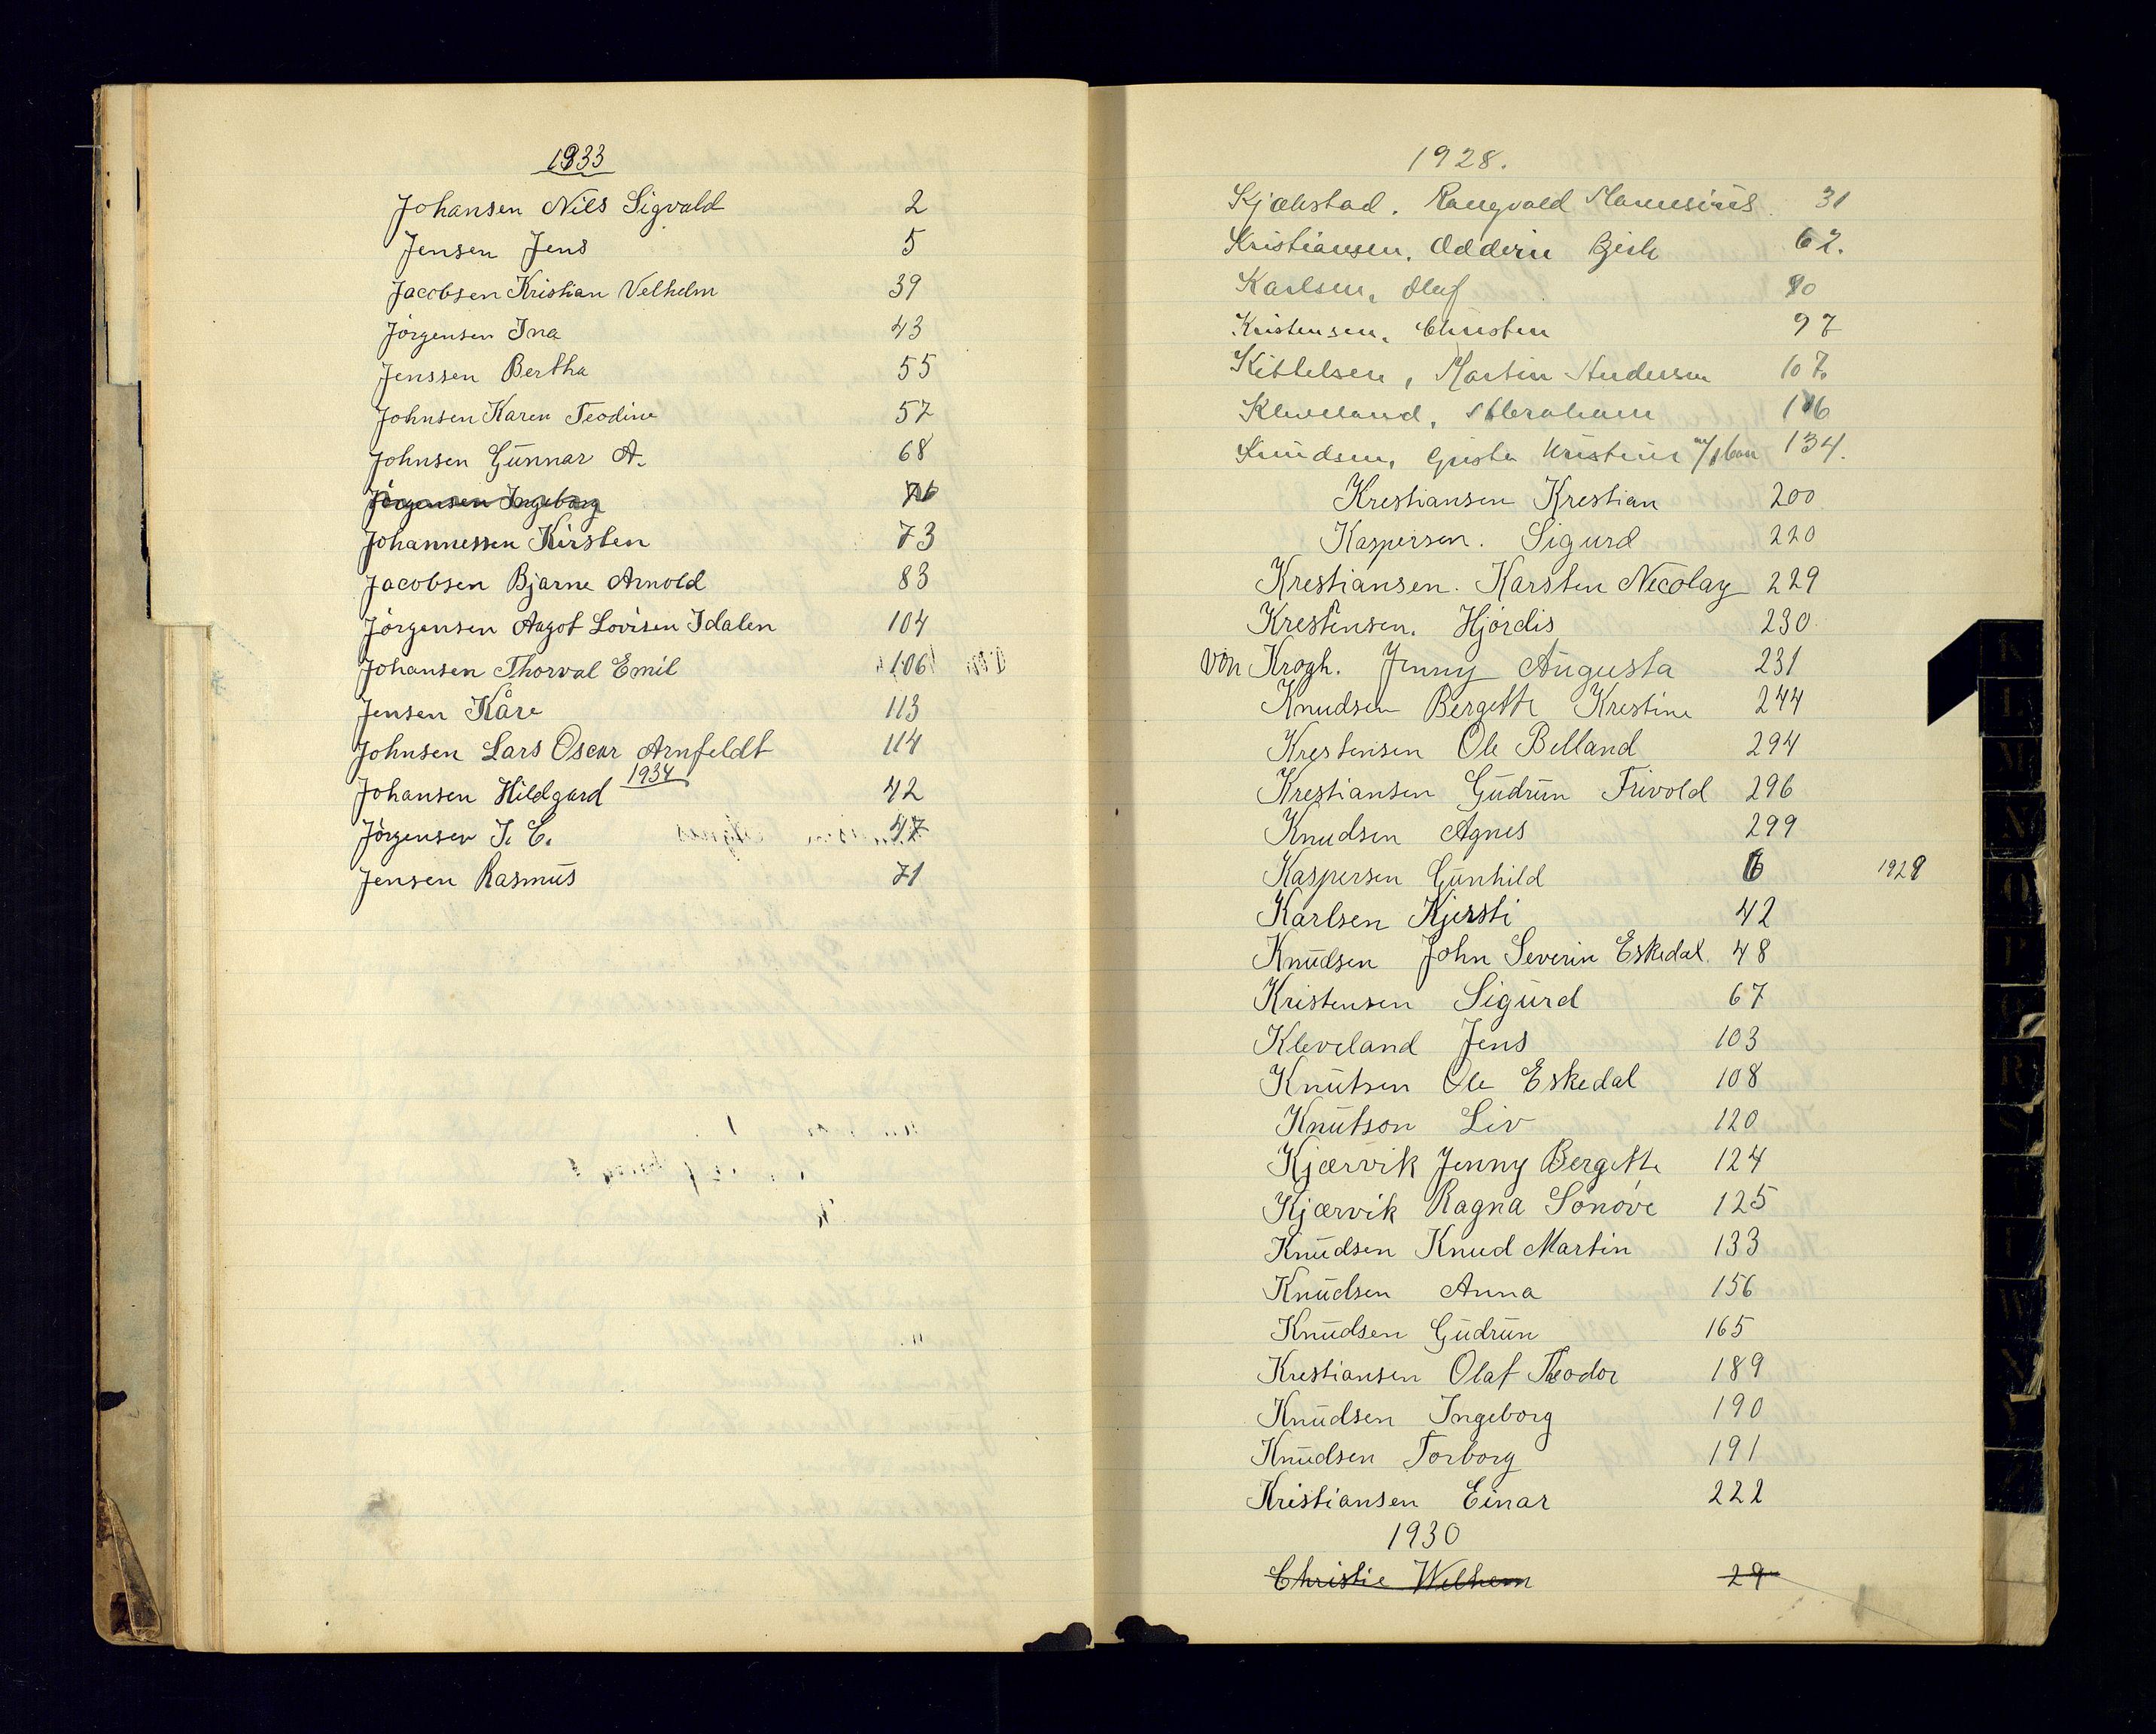 1933
Johansen Nils Sigvald 2
Jensen Jens 5
Jacobsen Kristian Velhelm 39
Jörgensen Ina 43
Jenssen Bertha 55
Johnsen Karen Teodine 57
Johnsen Gunnar A. 68
Jörgensen Ingeborg
Johannessen Kirsten 73
Jacobsen Bjarne Arnold 83
Jörgensen Aagot Lovisen Idalen 104
Johansen Thorval Emil 106
Jensen Kåre 113
Johnsen Lars Oscar Arnfeldt 114
1934
Johansen Hildgard 42
Jörgensen J. E. 47
Jensen Rasmus 71
1928.
Rangvald 31
Kristiansen, 62.
Karlsen, Oluf
Kristensen, Christen 97
Kittelsen, Martin Andersen 107.
Kleveland, Abraham
Knudsen, 134.
Krestiansen Krestian 200
Kaspersen. Sigurd 220
Krestiansen. Karsten Necolay 229
Krestensen. Hjördis 230
von Krogh. Jenny Augusta 231
Knudsen Bergette Krestine 244
Krestensen Ole Belland 294
Krestiansen Gudrun Frivold 296
Knudsen Agnes 299
Kaspersen Gunhild 6 1929
Karlsen Kjersti 42
Knudsen John Severin Eskedal. 48
Kristensen Sigurd 67
Kleveland Jens 103
Knutsen Ole Eskedal 108
Knutson Liv 120
Kjærvik Jenny Bergette 124
Kjærvik Ragna Sonöve 125
Knudsen Knud Martin 133
Knudsen Anna 156
Knudsen Gudrun 165
Krestiansen Olaf Teodor 189
Knudsen Ingeborg 190
Knudsen Torborg 191
Kristiansen Einar 222
1930
Christie Welhem 29